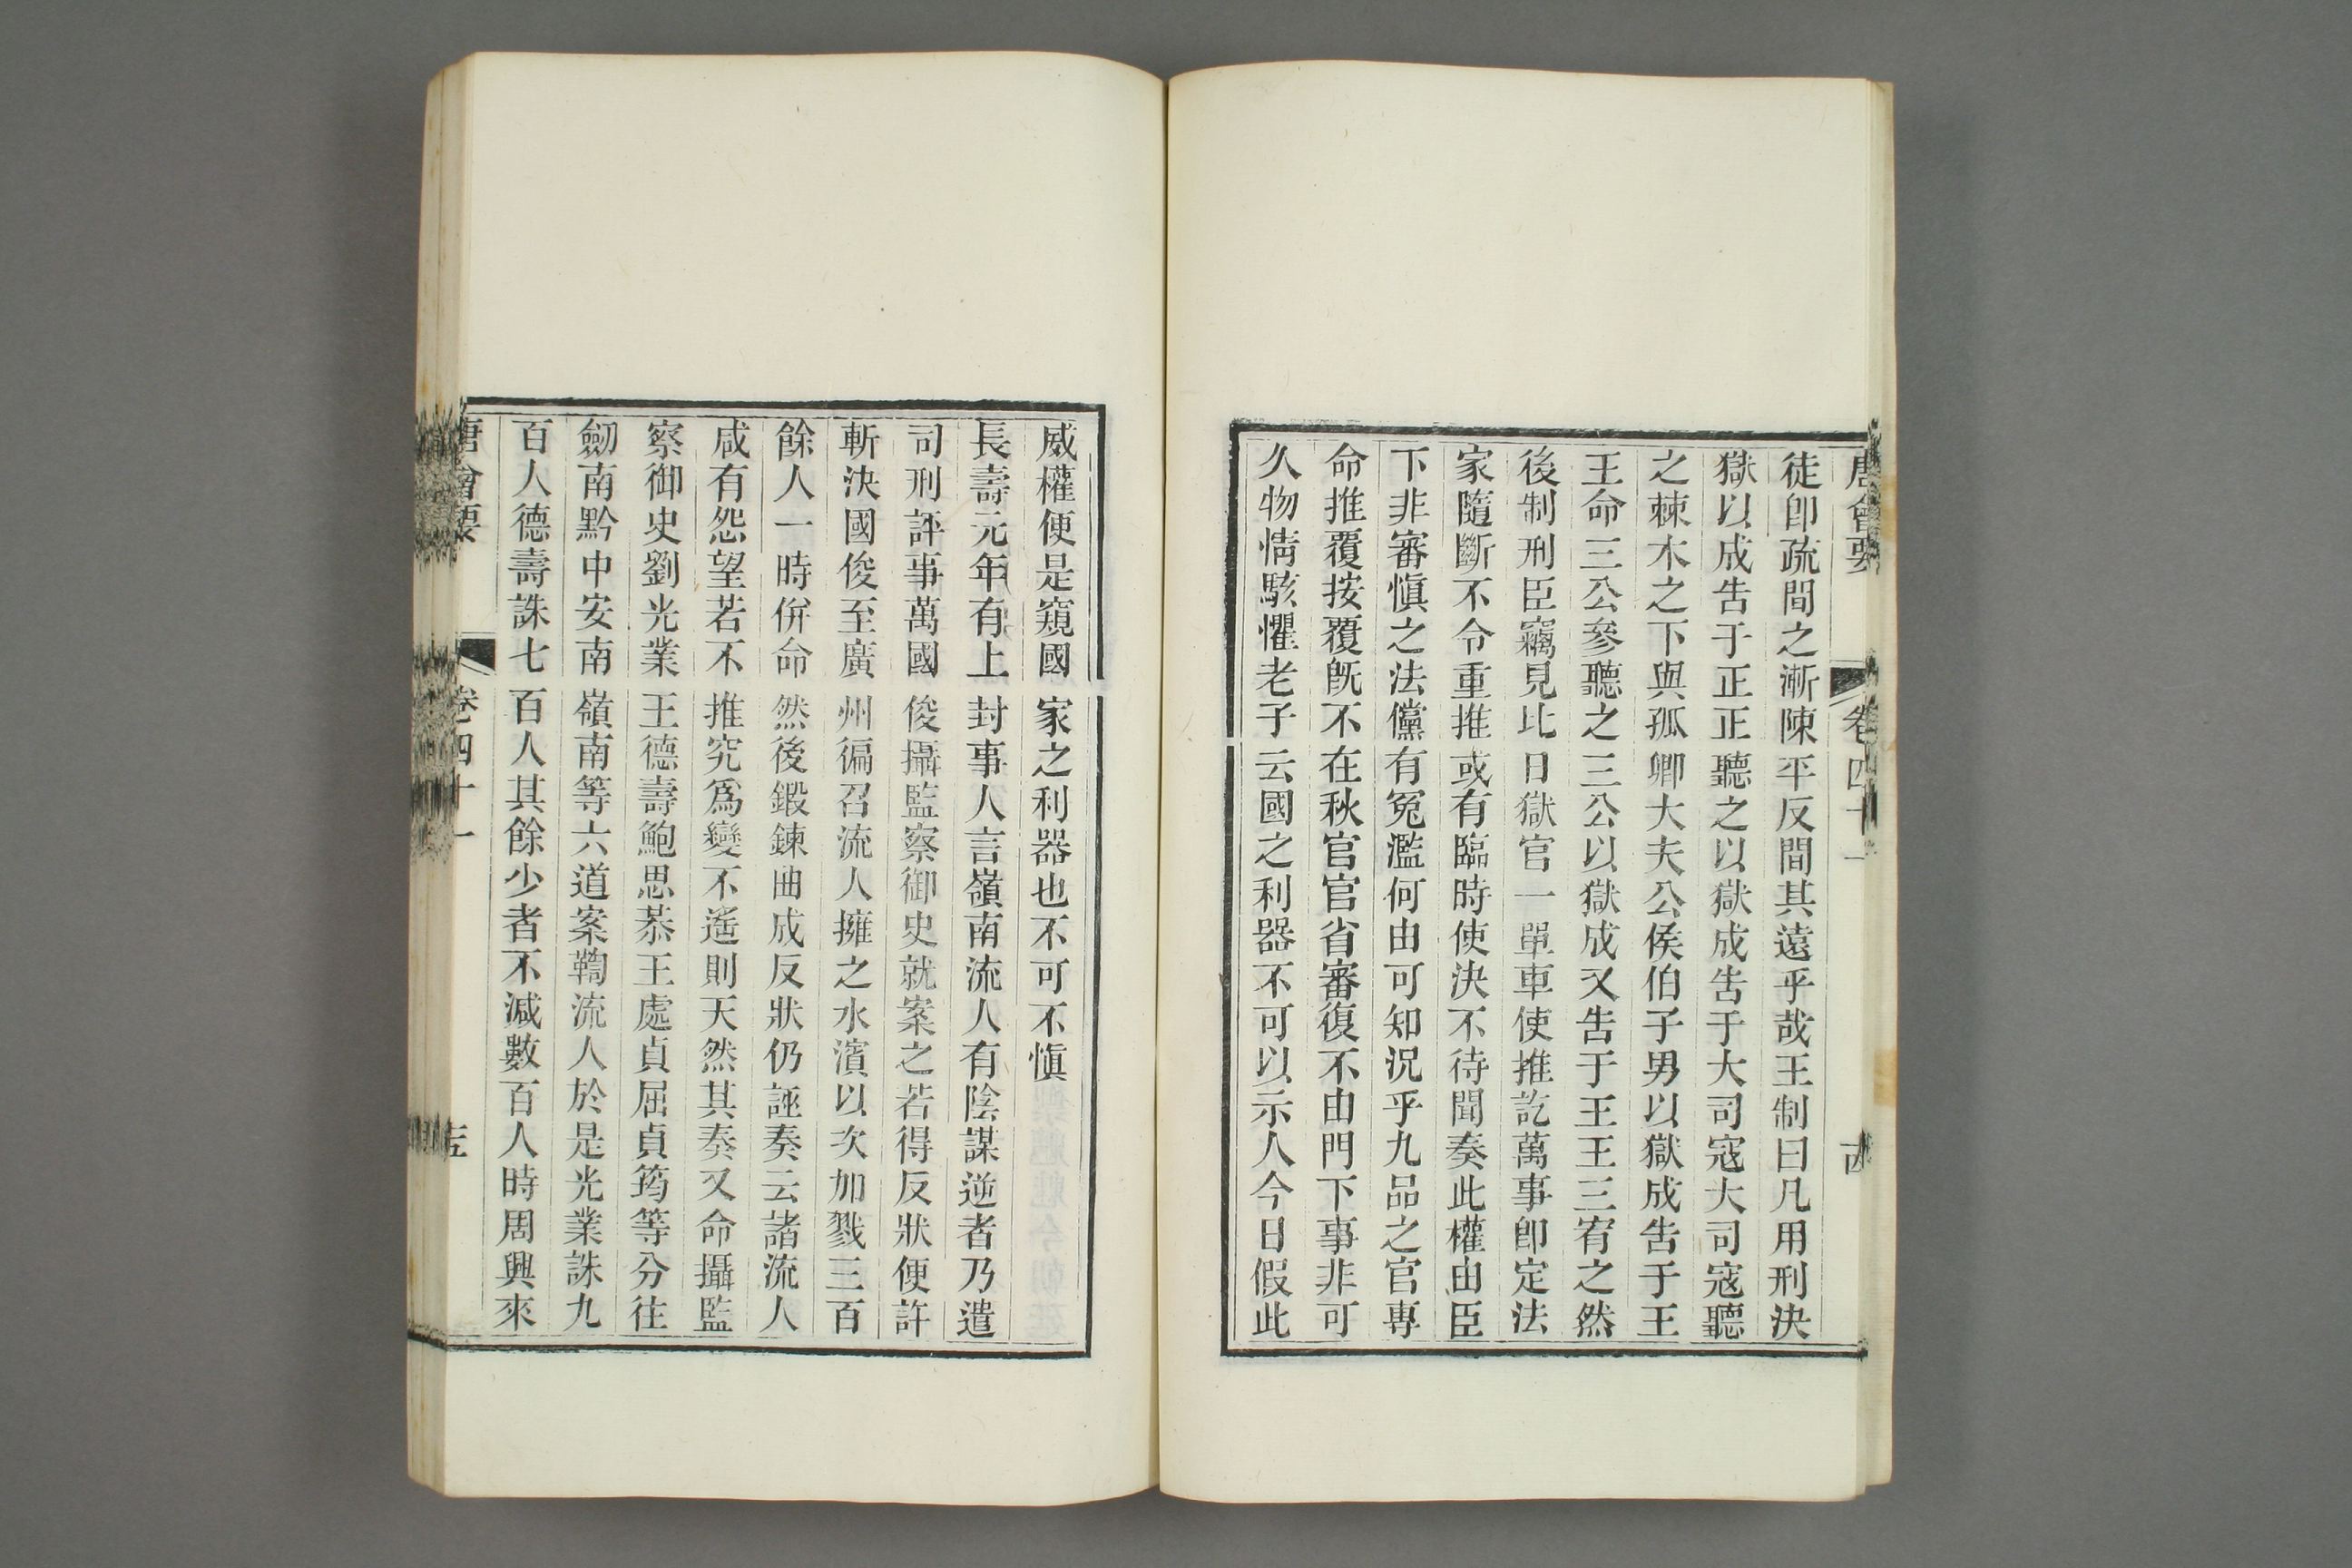 唐會要 卷四十一 古
徒卽疏間之漸陳平反間其遠乎哉王制曰凡用刑決
獄以成告于正正聽之以獄成告于大司寇大司寇聽
之棘木之下與孤卿大夫公侯伯子男以獄成告于王
王命三公參聽之三公以獄成又告于王王三宥之然
後制刑臣竊見比日獄官一單車使推訖萬事卽定法
家隨斷不令重推或有臨時使決不待聞奏此權由臣
下非審愼之法儻有冤濫何由可知況乎九品之官專
命推覆按覆旣不在秋官官省審復不由門下事非可
久物情駭懼老子云國之利器不可以示人今日假此
威權便是窺國家之利器也不可不愼
長壽元年有上封事人言嶺南流人有陰謀逆者乃遣
司刑評事萬國俊攝監察御史就案之若得反狀便許
斬決國俊至廣州徧召流人擁之水濱以次加戮三百
餘人一時併命然後鍛鍊曲成反狀仍誣奏云諸流人
咸有怨望若不推究爲變不遙則天然其奏又命攝監
察御史劉光業王德壽鮑思恭王處貞屈貞筠等分往
劒南黔中安南嶺南等六道案鞫流人於是光業誅九
百人德壽誅七百人其餘少者不減數百人時周興來
唐會要 卷四十一 五